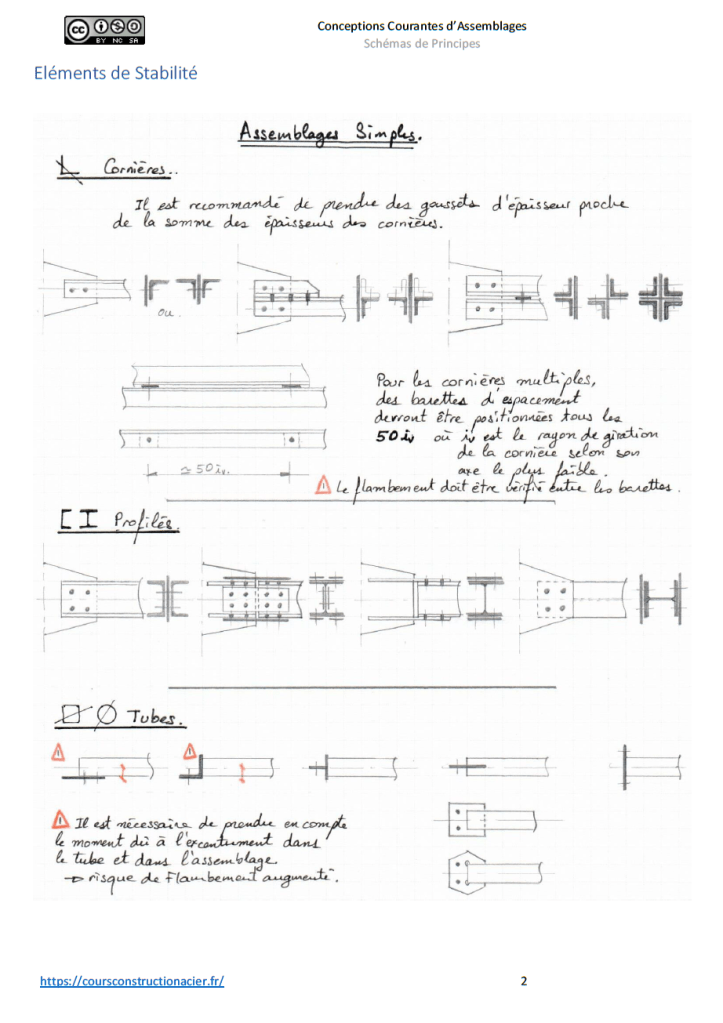 cc BY NC SA
Conceptions Courantes d'Assemblages
Schémas de Principes
Eléments de Stabilité
Assemblages Simples.
Cornières..
Il est recommandé de prendre des goussets d'épaisseur proche
de la somme des épaisseurs des cornières.
ou.
Pour les cornières multiples,
des barettes d'espacement
devront être positionnées tous les
50 iv où iv est le rayon de giration
de la cornière selon son
axe le plus faible.
≃ 50 iv.
⚠ Le flambement doit être vérifié entre les barettes.
Profilés.
Tubes.
⚠ Il est nécessaire de prendre en compte
le moment dû à l'excentrement dans
le tube et dans l'assemblage
→ risque de flambement augmenté.
https://coursconstructionacier.fr/
2